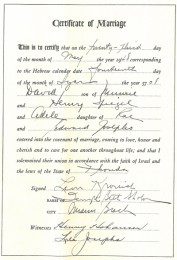 Certificate of Marriage
This is to certify that on the twenty-third day
of the month of May the year 19 corresponding
to the Hebrew calendar date fourteenth day
of the month of the year 57
David son of
and Henry Spiegel
and Adele daughter of Rae
and Edward Josephs
entered into the covenant of marriage, vowing to love, honor and
cherish and to care for one another throughout life; and that I
solemnized their union in accordance with the faith of Israel and
the laws of the State of Florida
Signed Leon Kronish
RABBI OF Temple Beth Sholom
CITY Miami Beach
Witnesses Henry
Josephs